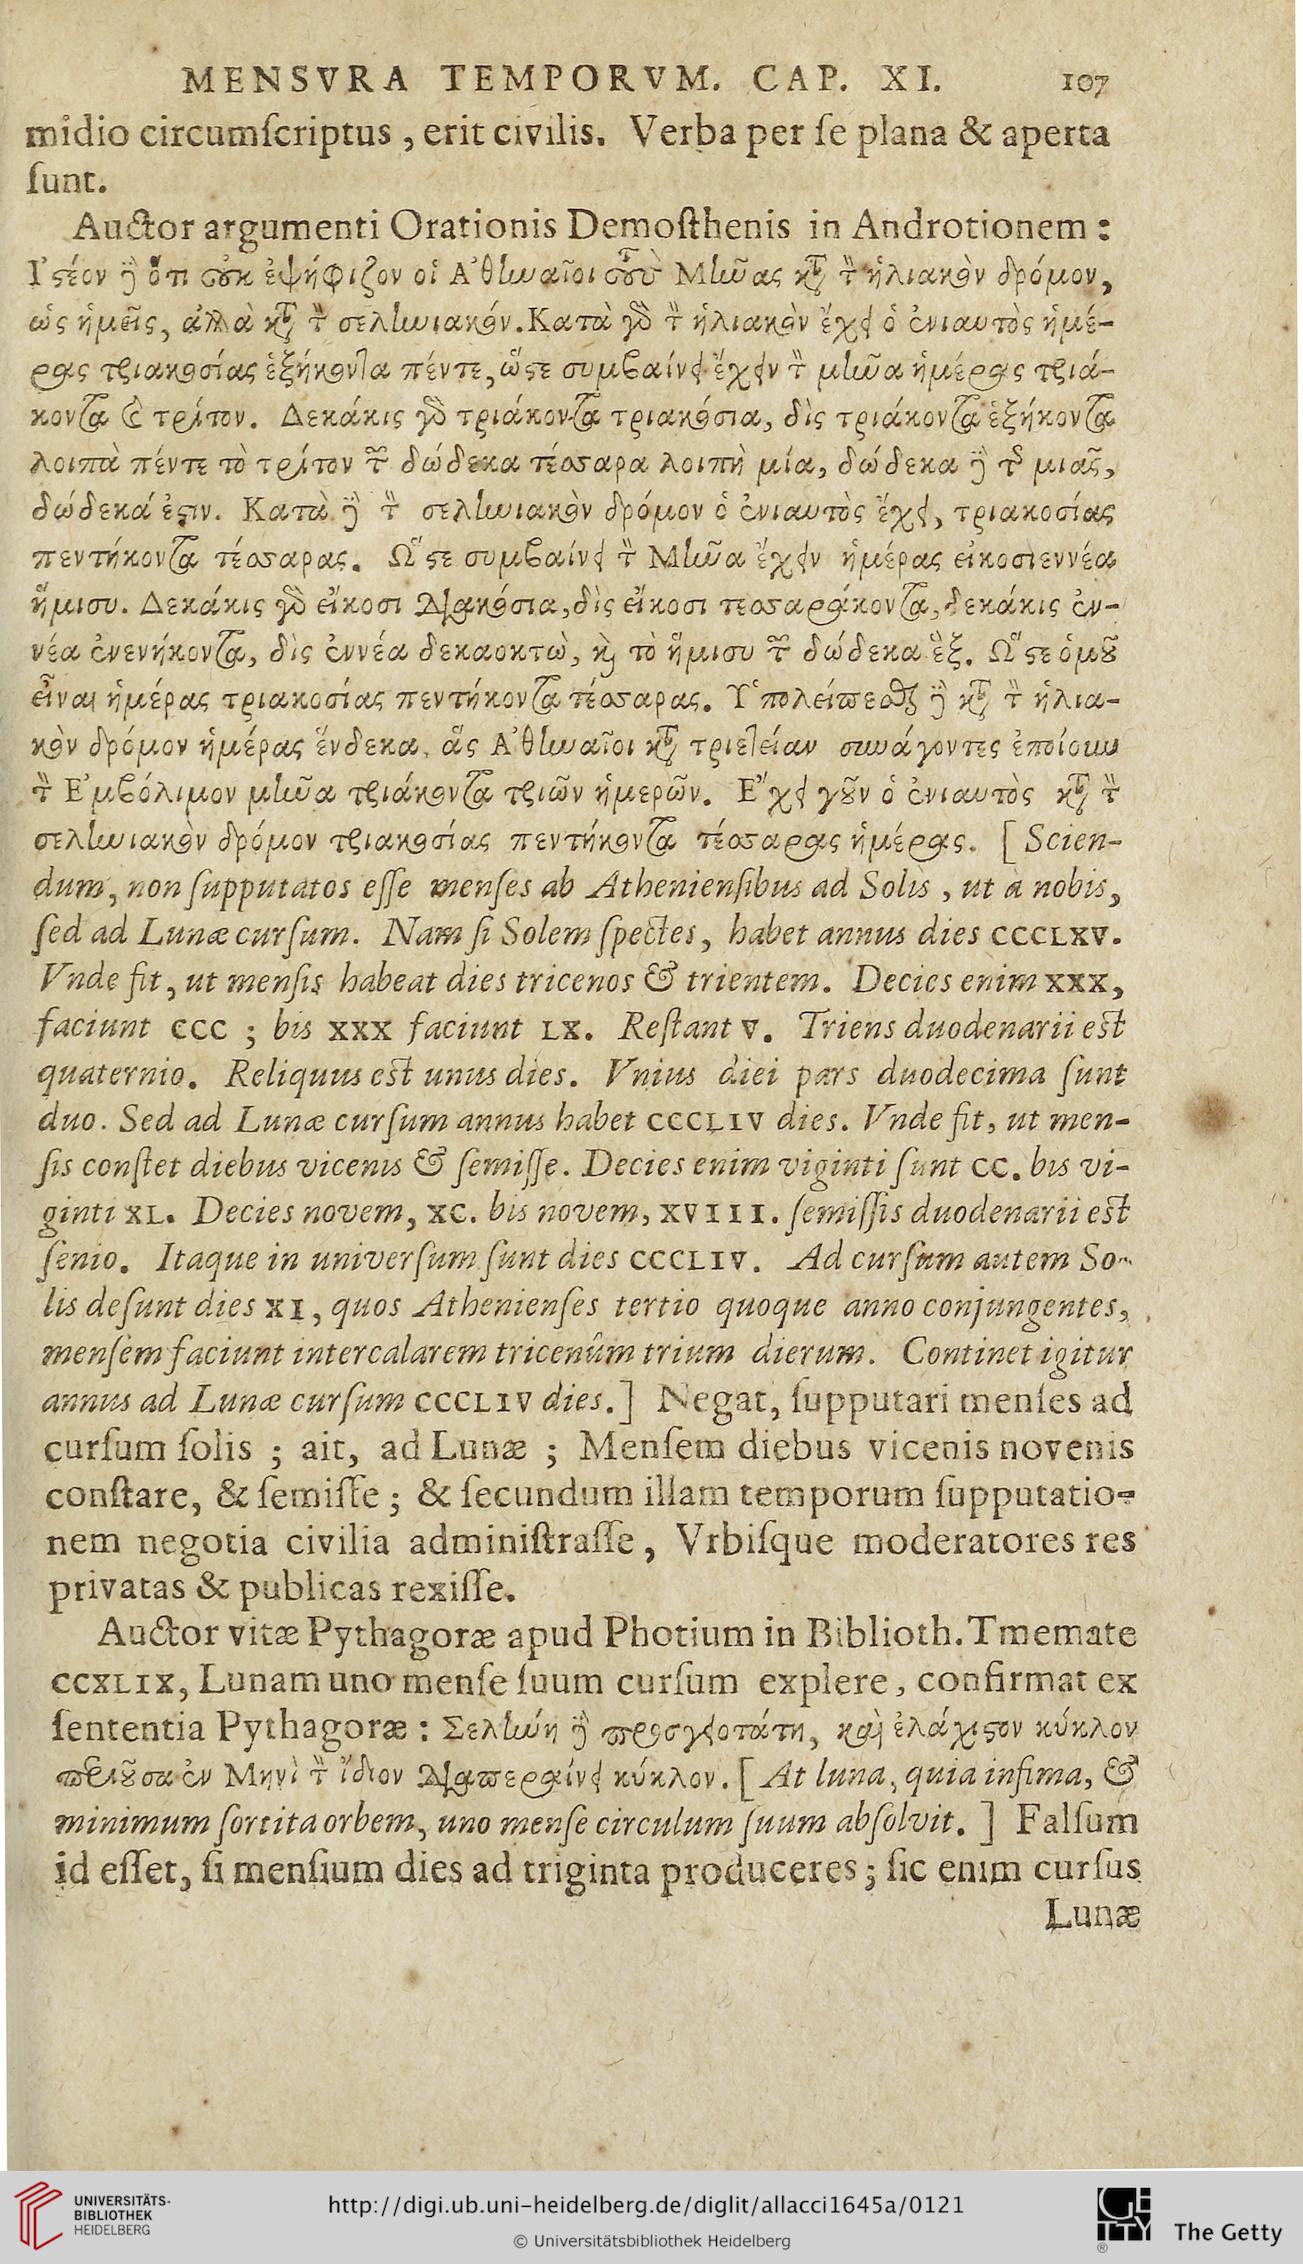 MENSVRA TEMPORVM. CAP. XI. 107
midio circumſcriptus, erit civilis. Verba per ſe plana & aperta
ſunt.
Auctor argumenti Orationis Demoſthenis in Androtionem:
Ἰστέον δὲ ὅτι οὐκ ἐψήφιζον οἱ Ἀθηναῖοι τοὺς Μῆνας κατὰ τὸν ἡλιακὸν δρόμον,
ὡς ἡμεῖς, ἀλλὰ κατὰ τὸν σεληνιακόν. Κατὰ γὰρ τὸν ἡλιακὸν ἔχει ὁ ἐνιαυτὸς ἡμέ-
ρας τριακοσίας ἑξήκοντα πέντε, ὥστε συμβαίνει ἔχειν τὸν μῆνα ἡμέρας τριά-
κοντα καὶ τρίτον. Δεκάκις γὰρ τριάκοντα τριακόσια, δὶς τριάκοντα ἑξήκοντα
λοιπὰ πέντε τὸ τρίτον τῶν δώδεκα τέσσαρα λοιπὴ μία, δώδεκα δὲ τῆς μιᾶς,
δώδεκά ἐστιν. Κατὰ δὲ τὸν σεληνιακὸν δρόμον ὁ ἐνιαυτὸς ἔχει, τριακοσίας
πεντήκοντα τέσσαρας. Ὥστε συμβαίνει τὸν Μῆνα ἔχειν ἡμέρας εἰκοσιεννέα
ἥμισυ. Δεκάκις γὰρ εἴκοσι διακόσια, δὶς εἴκοσι τεσσαράκοντα, δεκάκις ἐν-
νέα ἐνενήκοντα, δὶς ἐννέα δεκαοκτὼ, καὶ τὸ ἥμισυ τῶν δώδεκα ἓξ. Ὥστε ὁμοῦ
εἶναι ἡμέρας τριακοσίας πεντήκοντα τέσσαρας. Ὑπολείπεσθαι δὲ κατὰ τὸν ἡλια-
κὸν δρόμον ἡμέρας ἕνδεκα, ἃς Ἀθηναῖοι κατὰ τριετείαν συνάγοντες ἐποίουν
τὸν Ἐμβόλιμον μῆνα τριάκοντα τριῶν ἡμερῶν. Ἔχει γοῦν ὁ ἐνιαυτὸς κατὰ τὸν
σεληνιακὸν δρόμον τριακοσίας πεντήκοντα τέσσαρας ἡμέρας. [Scien-
dum, non ſupputatos eſſe menſes ab Athenienſibus ad Solis, ut à nobis,
ſed ad Lunæ curſum. Nam ſi Solem ſpectes, habet annus dies CCCLXV.
Vnde fit, ut menſis habeat dies tricenos & trientem. Decies enim XXX,
faciunt CCC; bis XXX faciunt LX. Reſtant V. Triens duodenarii est
quaternio. Reliquus est unus dies. Vnius diei pars duodecima ſunt
duo. Sed ad Lunæ curſum annus habet CCCLIV dies. Vnde fit, ut men-
ſis conſtet diebus vicenis & ſemiſſe. Decies enim viginti ſunt CC. bis vi-
ginti XL. Decies novem, XC. bis novem, XVIII. ſemiſſis duodenarii est
ſenio. Itaque in univerſum ſunt dies CCCLIV. Ad curſum autem So-
lis deſunt dies XI, quos Athenienſes tertio quoque anno conjungentes,
menſem faciunt intercalarem tricenûm trium dierum. Continet igitur
annus ad Lunæ curſum CCCLIV dies.] Negat, ſupputari menſes ad
curſum ſolis; ait, ad Lunæ; Menſem diebus vicenis novenis
conſtare, & ſemiſſe; & ſecundum illam temporum ſupputatio-
nem negotia civilia adminiſtraſſe, Vrbiſque moderatores res
privatas & publicas rexiſſe.
Auctor vitæ Pythagoræ apud Photium in Biblioth. Tmemate
CCXLIX, Lunam uno menſe ſuum curſum explere, confirmat ex
ſententia Pythagoræ: Σελήνη δὲ προσγειοτάτη, καὶ ἐλάχιστον κύκλον
περιιοῦσα ἐν Μηνὶ τὸν ἴδιον διαπεραίνει κύκλον. [At luna, quia infima, &
minimum ſortita orbem, uno menſe circulum ſuum abſolvit.] Falſum
id eſſet, ſi menſium dies ad triginta produceres; ſic enim curſus
Lunæ
UNIVERSITÄTS-
BIBLIOTHEK
HEIDELBERG
http://digi.ub.uni-heidelberg.de/diglit/allacci1645a/0121
© Universitätsbibliothek Heidelberg
GETTY
The Getty